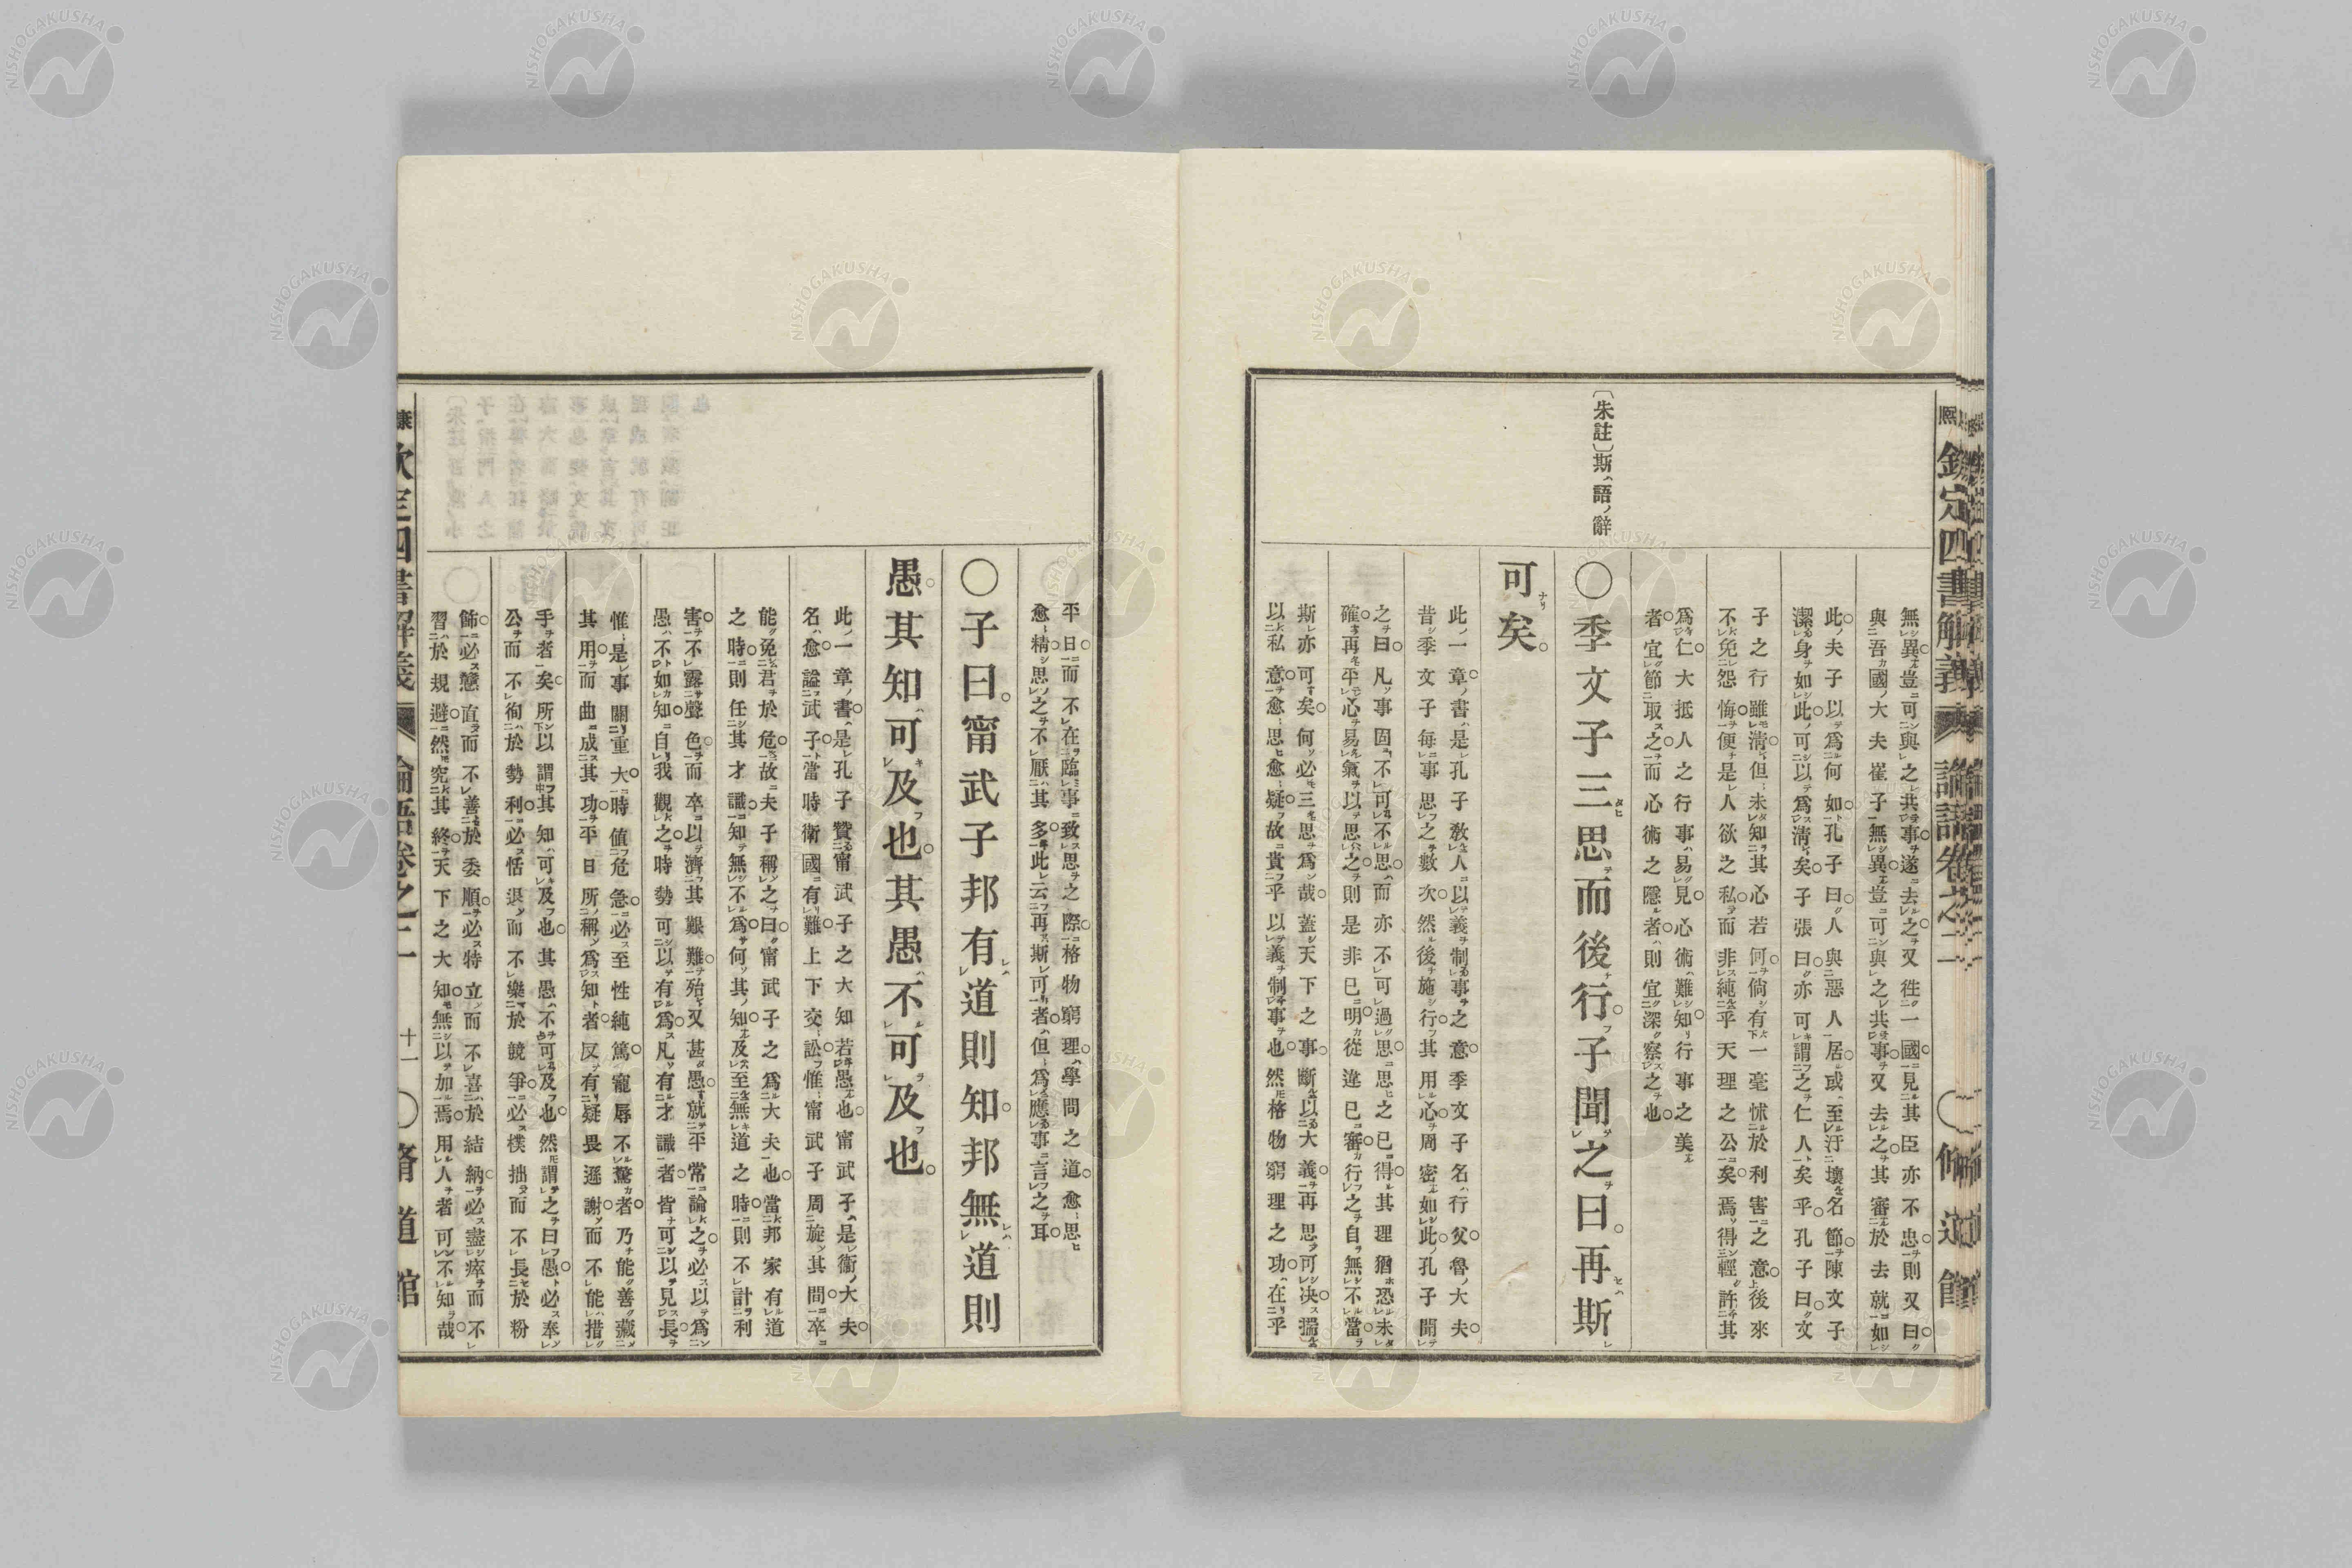 熙
欽定四書解義
論語卷之二
〇脩道館
無異豈可與之共事遂去之又徃一國見其臣亦不忠則又曰
與吾國大夫崔子無異豈可與之共事又去之其審於去就如
此夫子以爲何如孔子曰人與惡人居或至汙壞名節陳文子
潔身如此可以爲淸矣子張曰亦可謂之仁人矣乎孔子曰文
子之行雖淸但未知其心若何倘有一毫怵於利害之意後來
不免怨悔便是人欲之私而非純乎天理之公矣焉得輕許其
爲仁大抵人之行事易見心術難知行事之美
者宜節取之而心術之隱者則宜深察之也
〔朱註〕斯ハ語ノ辭
〇季文子三思而後行。子聞之曰。再斯
可矣。
此一章書是孔子敎人以義制事之意季文子名行父魯大夫
昔季文子每事思之數次然後施行其用心周密如此孔子聞
之曰凡事固不可不思而亦不可過思思之已得其理猶恐未
確再平心易氣以思之則是非已明從違已審行之自無不當
斯亦可矣何必三思爲哉蓋天下之事斷以大義再思可决揣
以私意愈思愈疑故貴乎以義制事也然格物窮理之功在乎
平日而不在臨事致思之際格物窮理學問之道愈思
愈精思之不厭其多此云再斯可者但爲應事言之耳
〇子曰。甯武子邦有道則知。邦無道則
愚。其知可及也。其愚不可及也。
此一章書是孔子贊甯武子之大知若愚也甯武子是衞大夫
名愈謚武子當時衛國有難上下交訟惟甯武子周旋其間卒
能免君於危故夫子稱之曰甯武子之爲大夫也當邦家有道
之時則任其才識知無不爲何其知及至無道之時則不計利
害不露聲色而卒以濟其艱難殆又甚愚就平常論之必以爲
愚不如知自我觀之時勢可以有爲凡有才識者皆可以見長
惟是事關重大時値危急必至性純篤寵辱不驚者乃能善藏
其用而曲成其功平日所稱爲知者反有疑畏遜謝而不能措
手者矣所以謂其知可及也其愚不可及也然謂之曰愚必奉
公而不徇於勢利必恬退而不樂於競爭必樸拙而不長於粉
飾必戇直而不善於委順必特立而不喜於結納必盡瘁而不
習於規避然究其終天下之大知無以加焉用人者可不知哉
康
欽定四書解義
論語卷之二
十一
〇脩道館
NISHOGAKUSHA